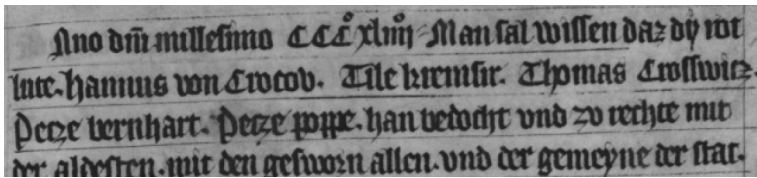 Ano dm̄ millesimo CCC° xliiij° Man sal wissen daz dy rot
lute. Hannus von Crocov. Tile kremsir. Thomas Crosswicz.
Petze bernhart. Petze poppe. han bedocht vnd zu rechte mit
der aldesten. mit den gesworn allen. vnd der gemeyne der stat.